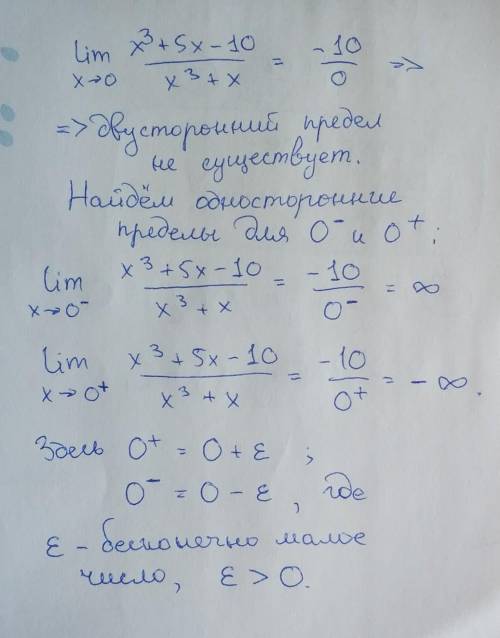 lim x→0 (x³ + 5x - 10)/(x³ + x) = -10/0 =>
=> двусторонний предел
не существует.
Найдём односторонние
пределы для 0⁻ и 0⁺:
lim x→0⁻ (x³ + 5x - 10)/(x³ + x) = -10/0⁻ = ∞
lim x→0⁺ (x³ + 5x - 10)/(x³ + x) = -10/0⁺ = -∞.
Здесь 0⁺ = 0 + ε ;
0⁻ = 0 - ε, где
ε - бесконечно малое
число, ε > 0.